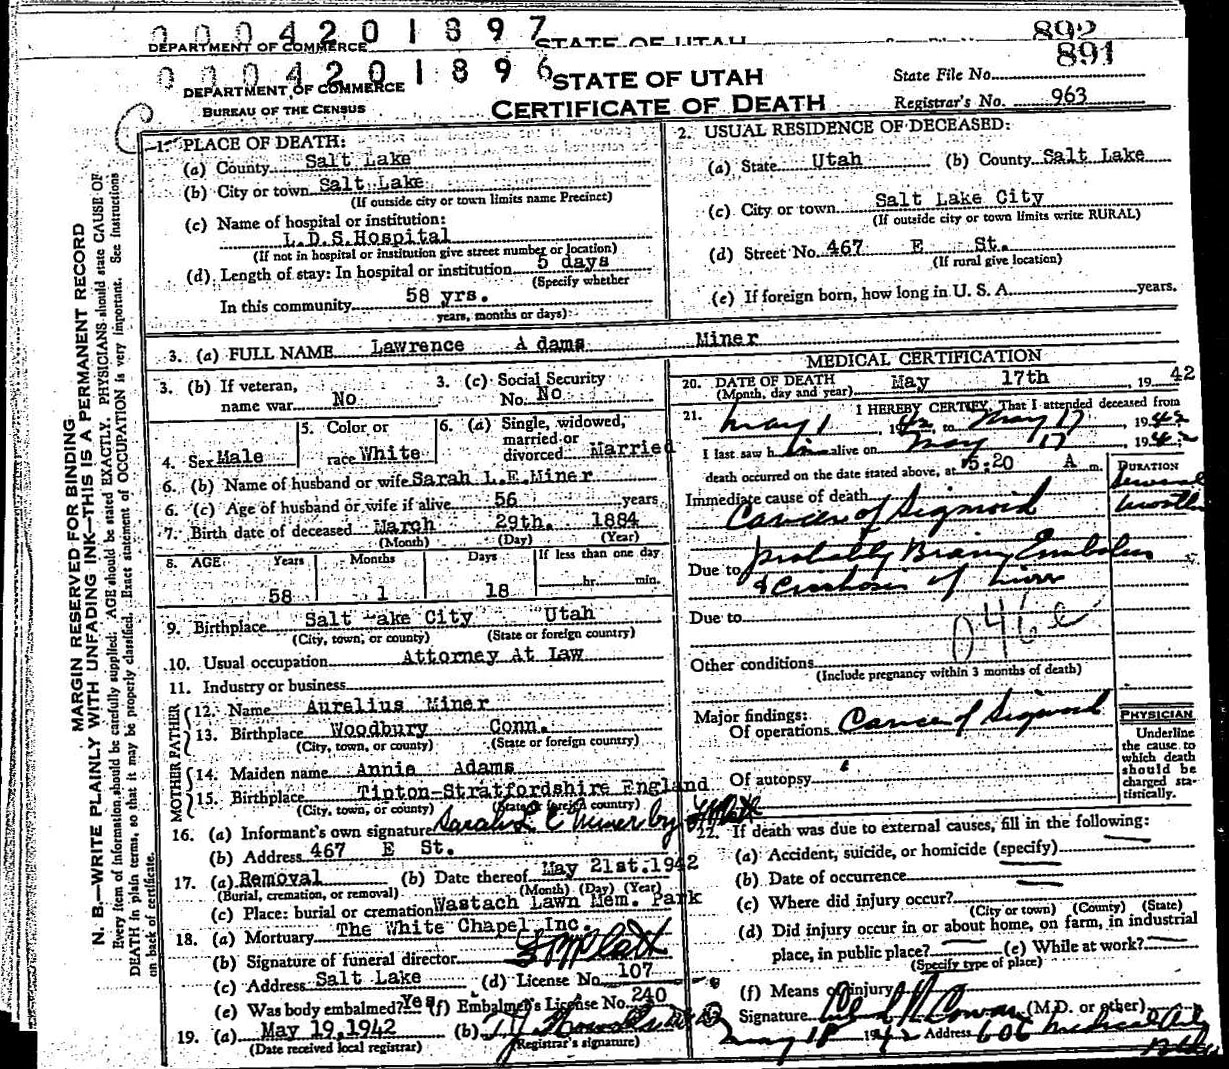 0004201897 STATE OF UTAH 892
DEPARTMENT OF COMMERCE
0004201896 STATE OF UTAH State File No. 891
DEPARTMENT OF COMMERCE
BUREAU OF THE CENSUS CERTIFICATE OF DEATH Registrar's No. 963
MARGIN RESERVED FOR BINDING
N. B.—WRITE PLAINLY WITH UNFADING INK—THIS IS A PERMANENT RECORD
Every item of information should be carefully supplied. AGE should be stated EXACTLY. PHYSICIANS should state CAUSE OF
DEATH in plain terms, so that it may be properly classified. Exact statement of OCCUPATION is very important. See instructions
on back of certificate.
1. PLACE OF DEATH:
(a) County Salt Lake
(b) City or town Salt Lake
(If outside city or town limits name Precinct)
(c) Name of hospital or institution:
L.D.S.Hospital
(If not in hospital or institution give street number or location)
(d) Length of stay: In hospital or institution 5 days
(Specify whether
In this community 58 yrs.
years, months or days)
2. USUAL RESIDENCE OF DECEASED:
(a) State Utah (b) County Salt Lake
(c) City or town Salt Lake City
(If outside city or town limits write RURAL)
(d) Street No. 467 E St.
(If rural give location)
(e) If foreign born, how long in U. S. A. years.
3. (a) FULL NAME Lawrence Adams Miner
3. (b) If veteran, 3. (c) Social Security
name war No No. No
4. Sex Male 5. Color or race White 6. (a) Single, widowed, married or divorced Married
6. (b) Name of husband or wife Sarah L.E.Miner
6. (c) Age of husband or wife if alive 56 years
7. Birth date of deceased March 29th. 1884
(Month) (Day) (Year)
8. AGE Years Months Days If less than one day
58 1 18 hr. min.
9. Birthplace Salt Lake City Utah
(City, town, or county) (State or foreign country)
10. Usual occupation Attorney At Law
11. Industry or business
FATHER
12. Name Aurelius Miner
13. Birthplace Woodbury Conn.
(City, town, or county) (State or foreign country)
MOTHER
14. Maiden name Annie Adams
15. Birthplace Tipton-Stratfordshire England
(City, town, or county) (State or foreign country)
16. (a) Informant's own signature Sarah L E Miner by
(b) Address 467 E St.
17. (a) Removal (b) Date thereof May 21st.1942
(Burial, cremation, or removal) (Month) (Day) (Year)
(c) Place: burial or cremation Wastach Lawn Mem. Park
18. (a) Mortuary The White Chapel Inc.
(b) Signature of funeral director
(c) Address Salt Lake (d) License No. 107
(e) Was body embalmed? Yes (f) Embalmer's License No. 240
19. (a) May 19,1942 (b)
(Date received local registrar) (Registrar's signature)
MEDICAL CERTIFICATION
20. DATE OF DEATH May 17th 1942
(Month, day and year)
21. I HEREBY CERTIFY, That I attended deceased from
May 1 1942, to May 17 1942
I last saw him alive on May 17 1942
death occurred on the date stated above, at 5:20 A m.
DURATION
Several
months
Immediate cause of death
Cancer of Sigmoid
Due to probably Brain Embolus
& Cirrhosis of liver
Due to
046e
Other conditions
(Include pregnancy within 3 months of death)
Major findings:
Of operations Cancer of Sigmoid
Of autopsy
PHYSICIAN
Underline
the cause to
which death
should be
charged sta-
tistically.
22. If death was due to external causes, fill in the following:
(a) Accident, suicide, or homicide (specify)
(b) Date of occurrence
(c) Where did injury occur?
(City or town) (County) (State)
(d) Did injury occur in or about home, on farm, in industrial
place, in public place? (e) While at work?
(Specify type of place)
(f) Means of injury
Signature (M.D. or other)
May 18 1942 Address 606 Medical Arts
Bldg